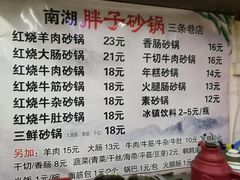 南湖胖子砂锅 三条巷店
红烧羊肉砂锅 23元
红烧大肠砂锅 21元
红烧牛肉砂锅 18元
红烧牛筋砂锅 18元
红烧牛杂砂锅 18元
红烧牛肚砂锅 18元
三鲜砂锅 18元
香肠砂锅 16元
干切牛肉砂锅 16元
年糕砂锅 14元
火腿肠砂锅 13元
素砂锅 12元
冰镇饮料 2-5元/瓶
另加: 羊肉15元 大肠13元 牛肉/牛筋/牛杂/牛肚
干切/香肠 8元 蔬菜